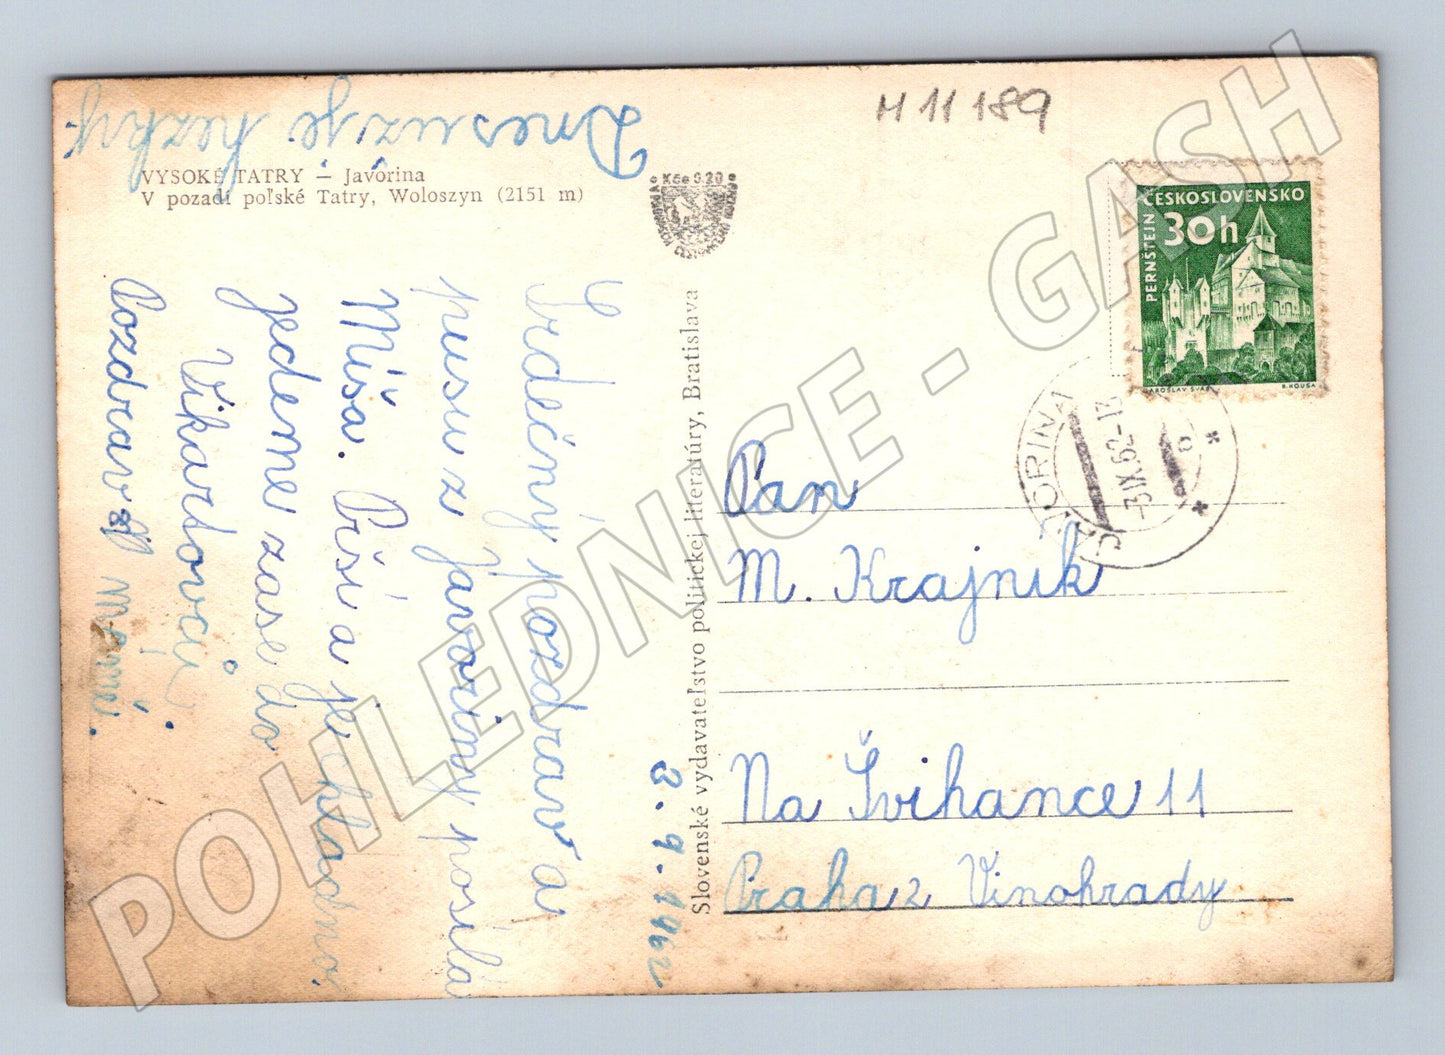 M 11 189
Dnes už je hezky.
VYSOKÉ TATRY – Javorina
V pozadí poľské Tatry, Woloszyn (2151 m)
Kčs 0.20
Srdečný pozdrav a
pusu z Javoriny posílá
Míša. Prší a je chladno.
Jedeme zase do
Vikartovců.
Pozdrav
3. 9. 1962
Slovenské vydavateľstvo politickej literatúry, Bratislava
ČESKOSLOVENSKO
30h
PERNŠTEJN
JAROSLAV ŠVÁB
B. HOUSA
JAVORINA
-3.IX.62-12
Pan
M. Krajník
Na Švihance 11
Praha 2 Vinohrady
POHLEDNICE - GASH